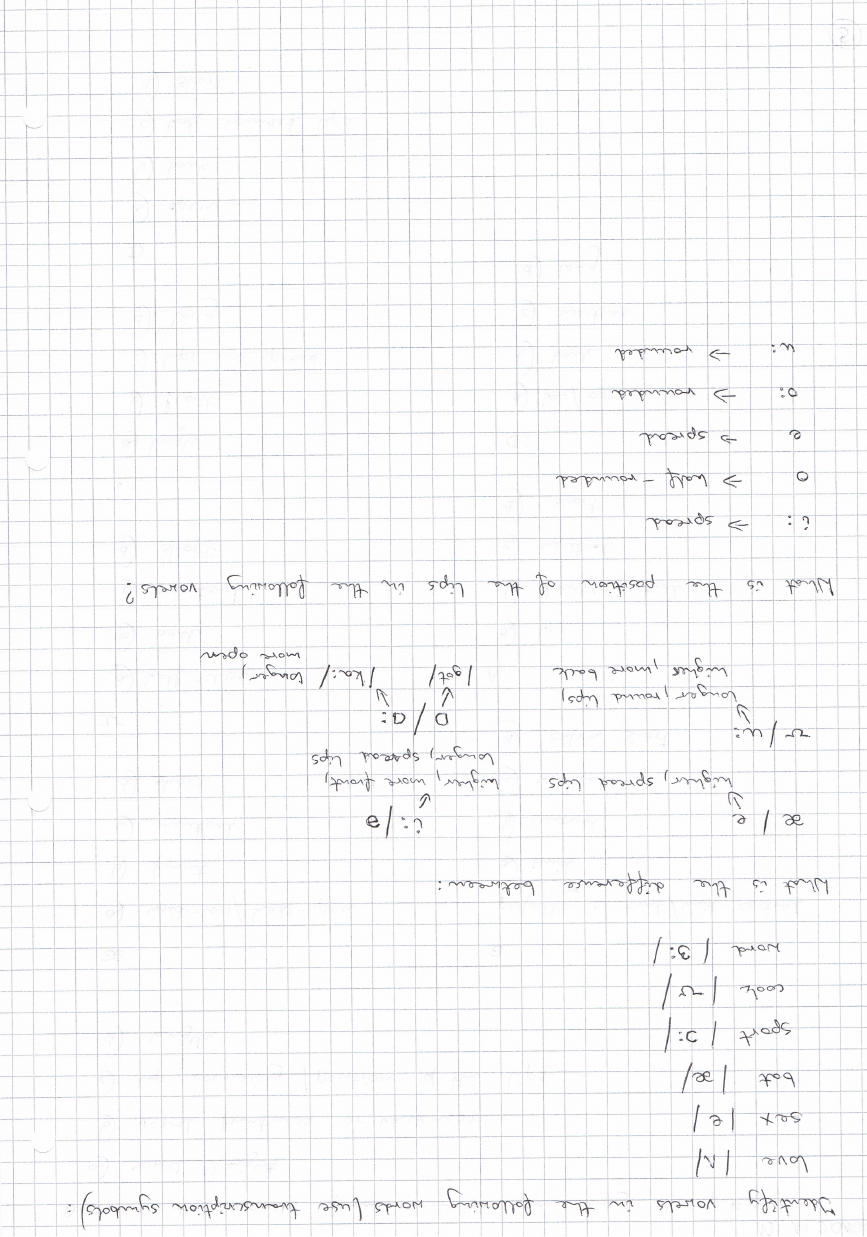 Identify vowels in the following words (use transcription symbols):
love /ʌ/
sex /e/
bat /æ/
sport /ɔ:/
cook /ʊ/
word /3:/
What is the difference between:
æ / e i: / ə
higher, spread lips higher, more front,
longer, spread lips
ʊ / u: ɒ / ɑ:
longer, round lips, /gɒt/ /kɑ:/ longer,
higher, more back more open
What is the position of the lips in the following vowels?
i: → spread
ɒ → half-rounded
e → spread
ɔ: → rounded
u: → rounded
5